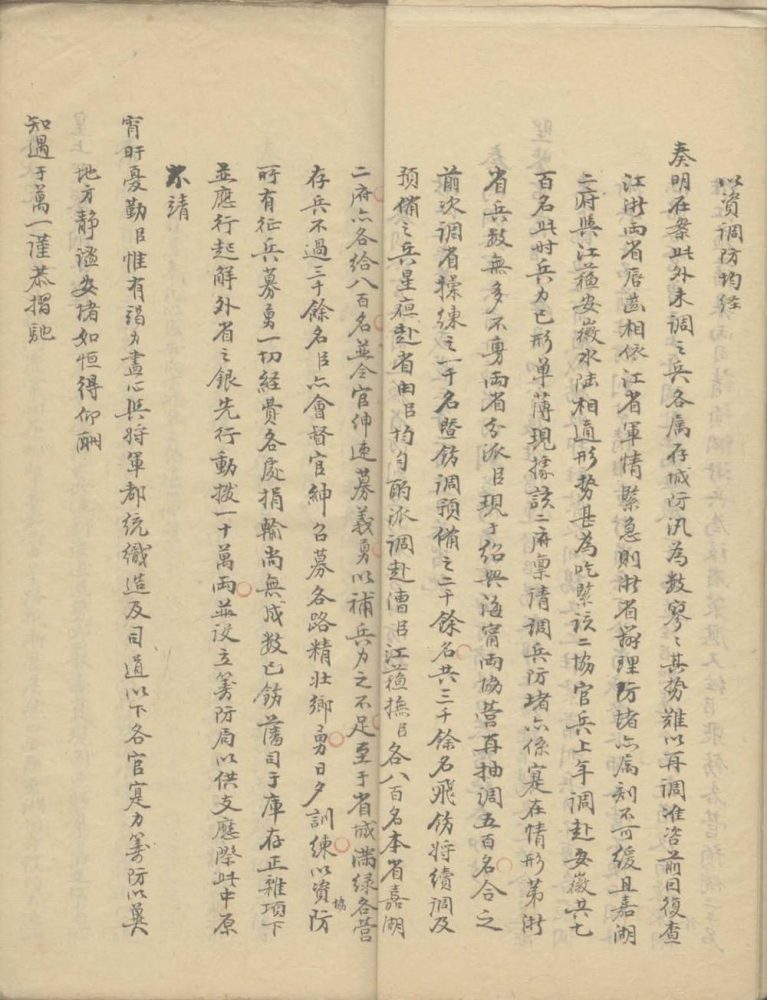 以資調防均經
奏明在案此外未調之兵各屬存城防汛為數寥〻其勢難以再調准咨前因復查
江浙兩省唇齒相依江省軍情緊急則浙省辦理防堵亦屬刻不可緩且嘉湖
二府與江蘇安徽水陸相通形勢甚為吃緊該二協官兵上年調赴安徽共七
百名此時兵力已形單薄現據該二府稟請調兵防堵亦係寔在情形第浙
省兵數無多不勇兩省分派臣現于紹興海寧兩協營再抽調五百名合之
前次調省操練之一千名暨飭調預備之二千餘名共三千餘名飛飭將續調及
預備之兵星夜赴省由臣均勻酌派調赴漕臣江蘇撫臣各八百名本省嘉湖
二府亦各給八百名並令官紳速募義勇以補兵力之不足至于省城滿綠各營
存兵不過三千餘名臣亦會督官紳召募各路精壯鄉勇日夕訓練以資防
協
所有征兵募勇一切經費各處捐輸尚無成數已飭藩司于庫存正雜項下
並應行起解外省之銀先行動撥一十萬兩並設立籌防局以供支應際此中原
不靖
宵旰憂勤臣惟有竭力盡心與將軍都統織造及司道以下各官寔力籌防以冀
地方靜謐安堵如恒得仰酬
知遇于萬一謹恭摺馳